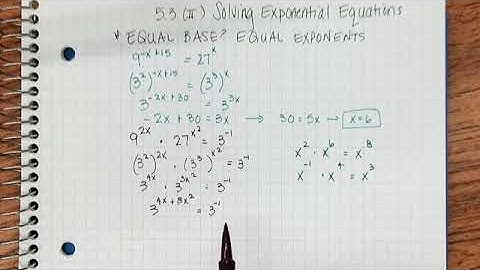 5.3 (II) Solving Exponential Equations
* EQUAL BASE? EQUAL EXPONENTS
9^(-x+15) = 27^x
(3^2)^(-x+15) = (3^3)^x
3^(-2x+30) = 3^(3x)
-2x + 30 = 3x → 30 = 5x → x = 6
9^(2x) · 27^(x^2) = 3^(-1)
(3^2)^(2x) · (3^3)^(x^2) = 3^(-1)
3^(4x) · 3^(3x^2) = 3^(-1)
3^(4x+3x^2) = 3^(-1)
x^2 · x^6 = x^8
x^(-1) · x^4 = x^3